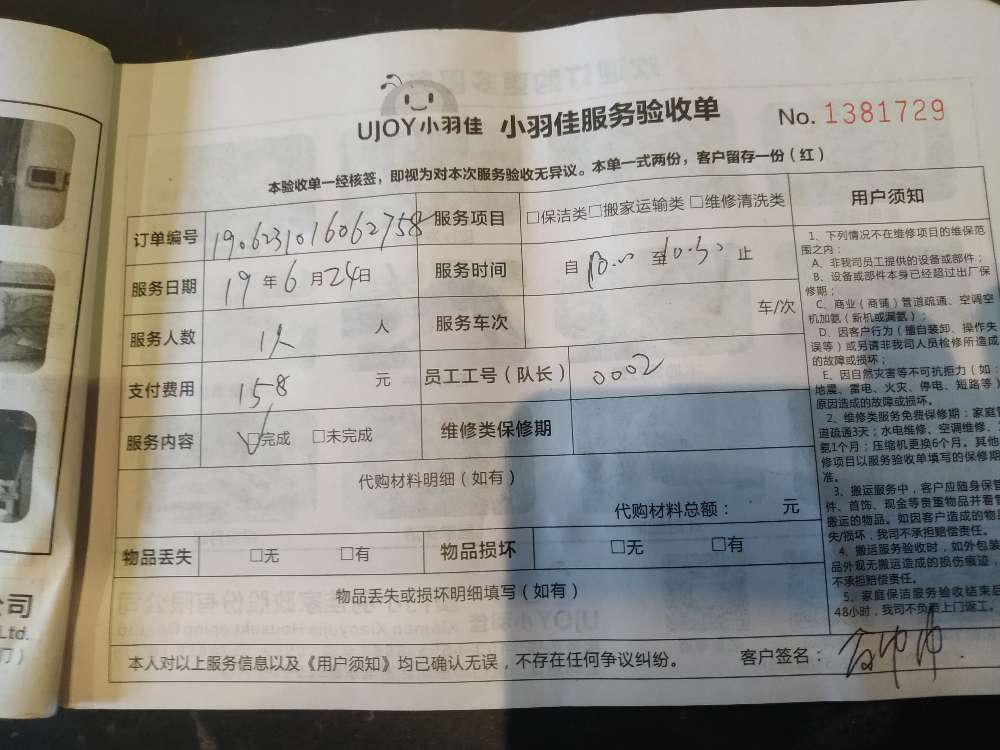 UJOY小羽佳 小羽佳服务验收单 No. 1381729
本验收单一经核签，即视为对本次服务验收无异议。本单一式两份，客户留存一份（红）
订单编号 1906231016062758 服务项目 □保洁类□搬家运输类 □维修清洗类
服务日期 19年6月24日 服务时间 自 至10:30止
服务人数 1人 人 服务车次 车/次
支付费用 158 元 员工工号（队长） 0002
服务内容 ☑完成 □未完成 维修类保修期
代购材料明细（如有）
代购材料总额： 元
物品丢失 □无 □有 物品损坏 □无 □有
物品丢失或损坏明细填写（如有）
本人对以上服务信息以及《用户须知》均已确认无误，不存在任何争议纠纷。 客户签名：
用户须知
1、下列情况不在维修项目的维保范
围之内：
A、非我司员工提供的设备或部件；
B、设备或部件本身已经超过出厂保
修期；
C、商业（商铺）管道疏通、空调空
机加氨（新机或漏氨）；
D、因客户行为（擅自装卸、操作失
误等）或另请非我司人员检修所造成
的故障或损坏；
E、因自然灾害等不可抗拒力（如：
地震、雷电、火灾、停电、短路等）
原因造成的故障或损坏。
2、维修类服务免费保修期：家庭管
道疏通3天；水电维修、空调维修、
氨1个月；压缩机更换6个月。其他
修项目以服务验收单填写的保修期
准。
3、搬运服务中，客户应随身保管
件、首饰、现金等贵重物品并看管
搬运的物品。如因客户造成的物品
失/损坏，我司不承担赔偿责任。
4、搬运服务验收时，如外包装
品外观无搬运造成的损伤痕迹，
不承担赔偿责任。
5、家庭保洁服务验收结束后
48小时，我司不负责上门返工。
公司
Ltd.
门）